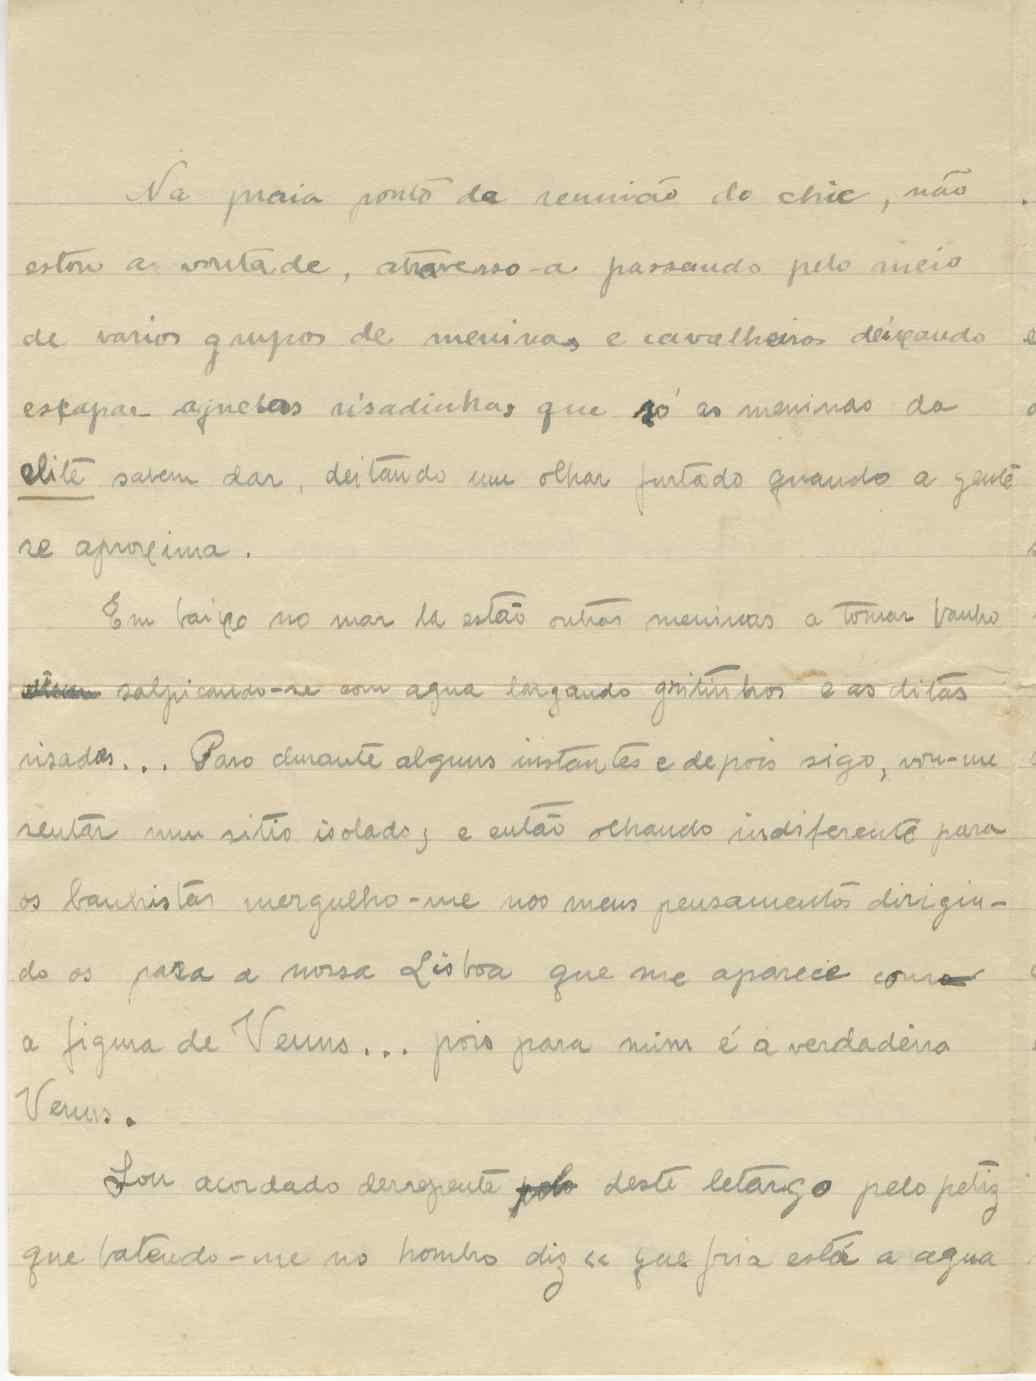 Na praia ponto da reunião do chic, não
estou a vontade, atravesso-a passando pelo meio
de varios grupos de meninas e cavalheiros deixando
escapar aquelas risadinhas que só as meninas da
elite sabem dar, deitando um olhar furtado quando a gente
se aproxima.
Em baixo no mar la estão outras meninas a tomar banho
salpicando-se com agua largando gritinhos e as ditas
risadas... Paro durante alguns instantes e depois sigo, vou-me
sentar num sitio isolado, e então olhando indiferente para
os banhistas mergulho-me nos meus pensamentos dirigin-
do os para a nossa Lisboa que me aparece como
a figura de Venus... pois para mim é a verdadeira
Venus.
Sou acordado derrepente deste letargo pelo petiz
que batendo-me no hombro diz « que fria está a agua